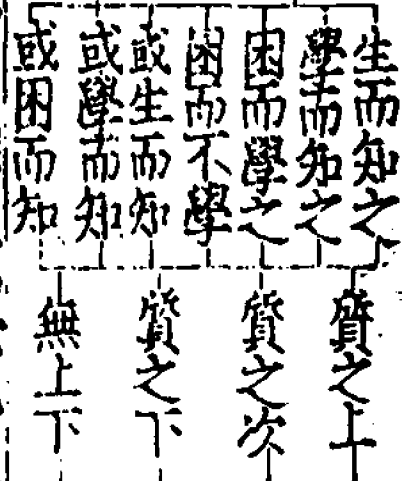 生而知之
學而知之
困而學之
困而不學
或生而知
或學而知
或困而知
質之上
質之次
質之下
無上下